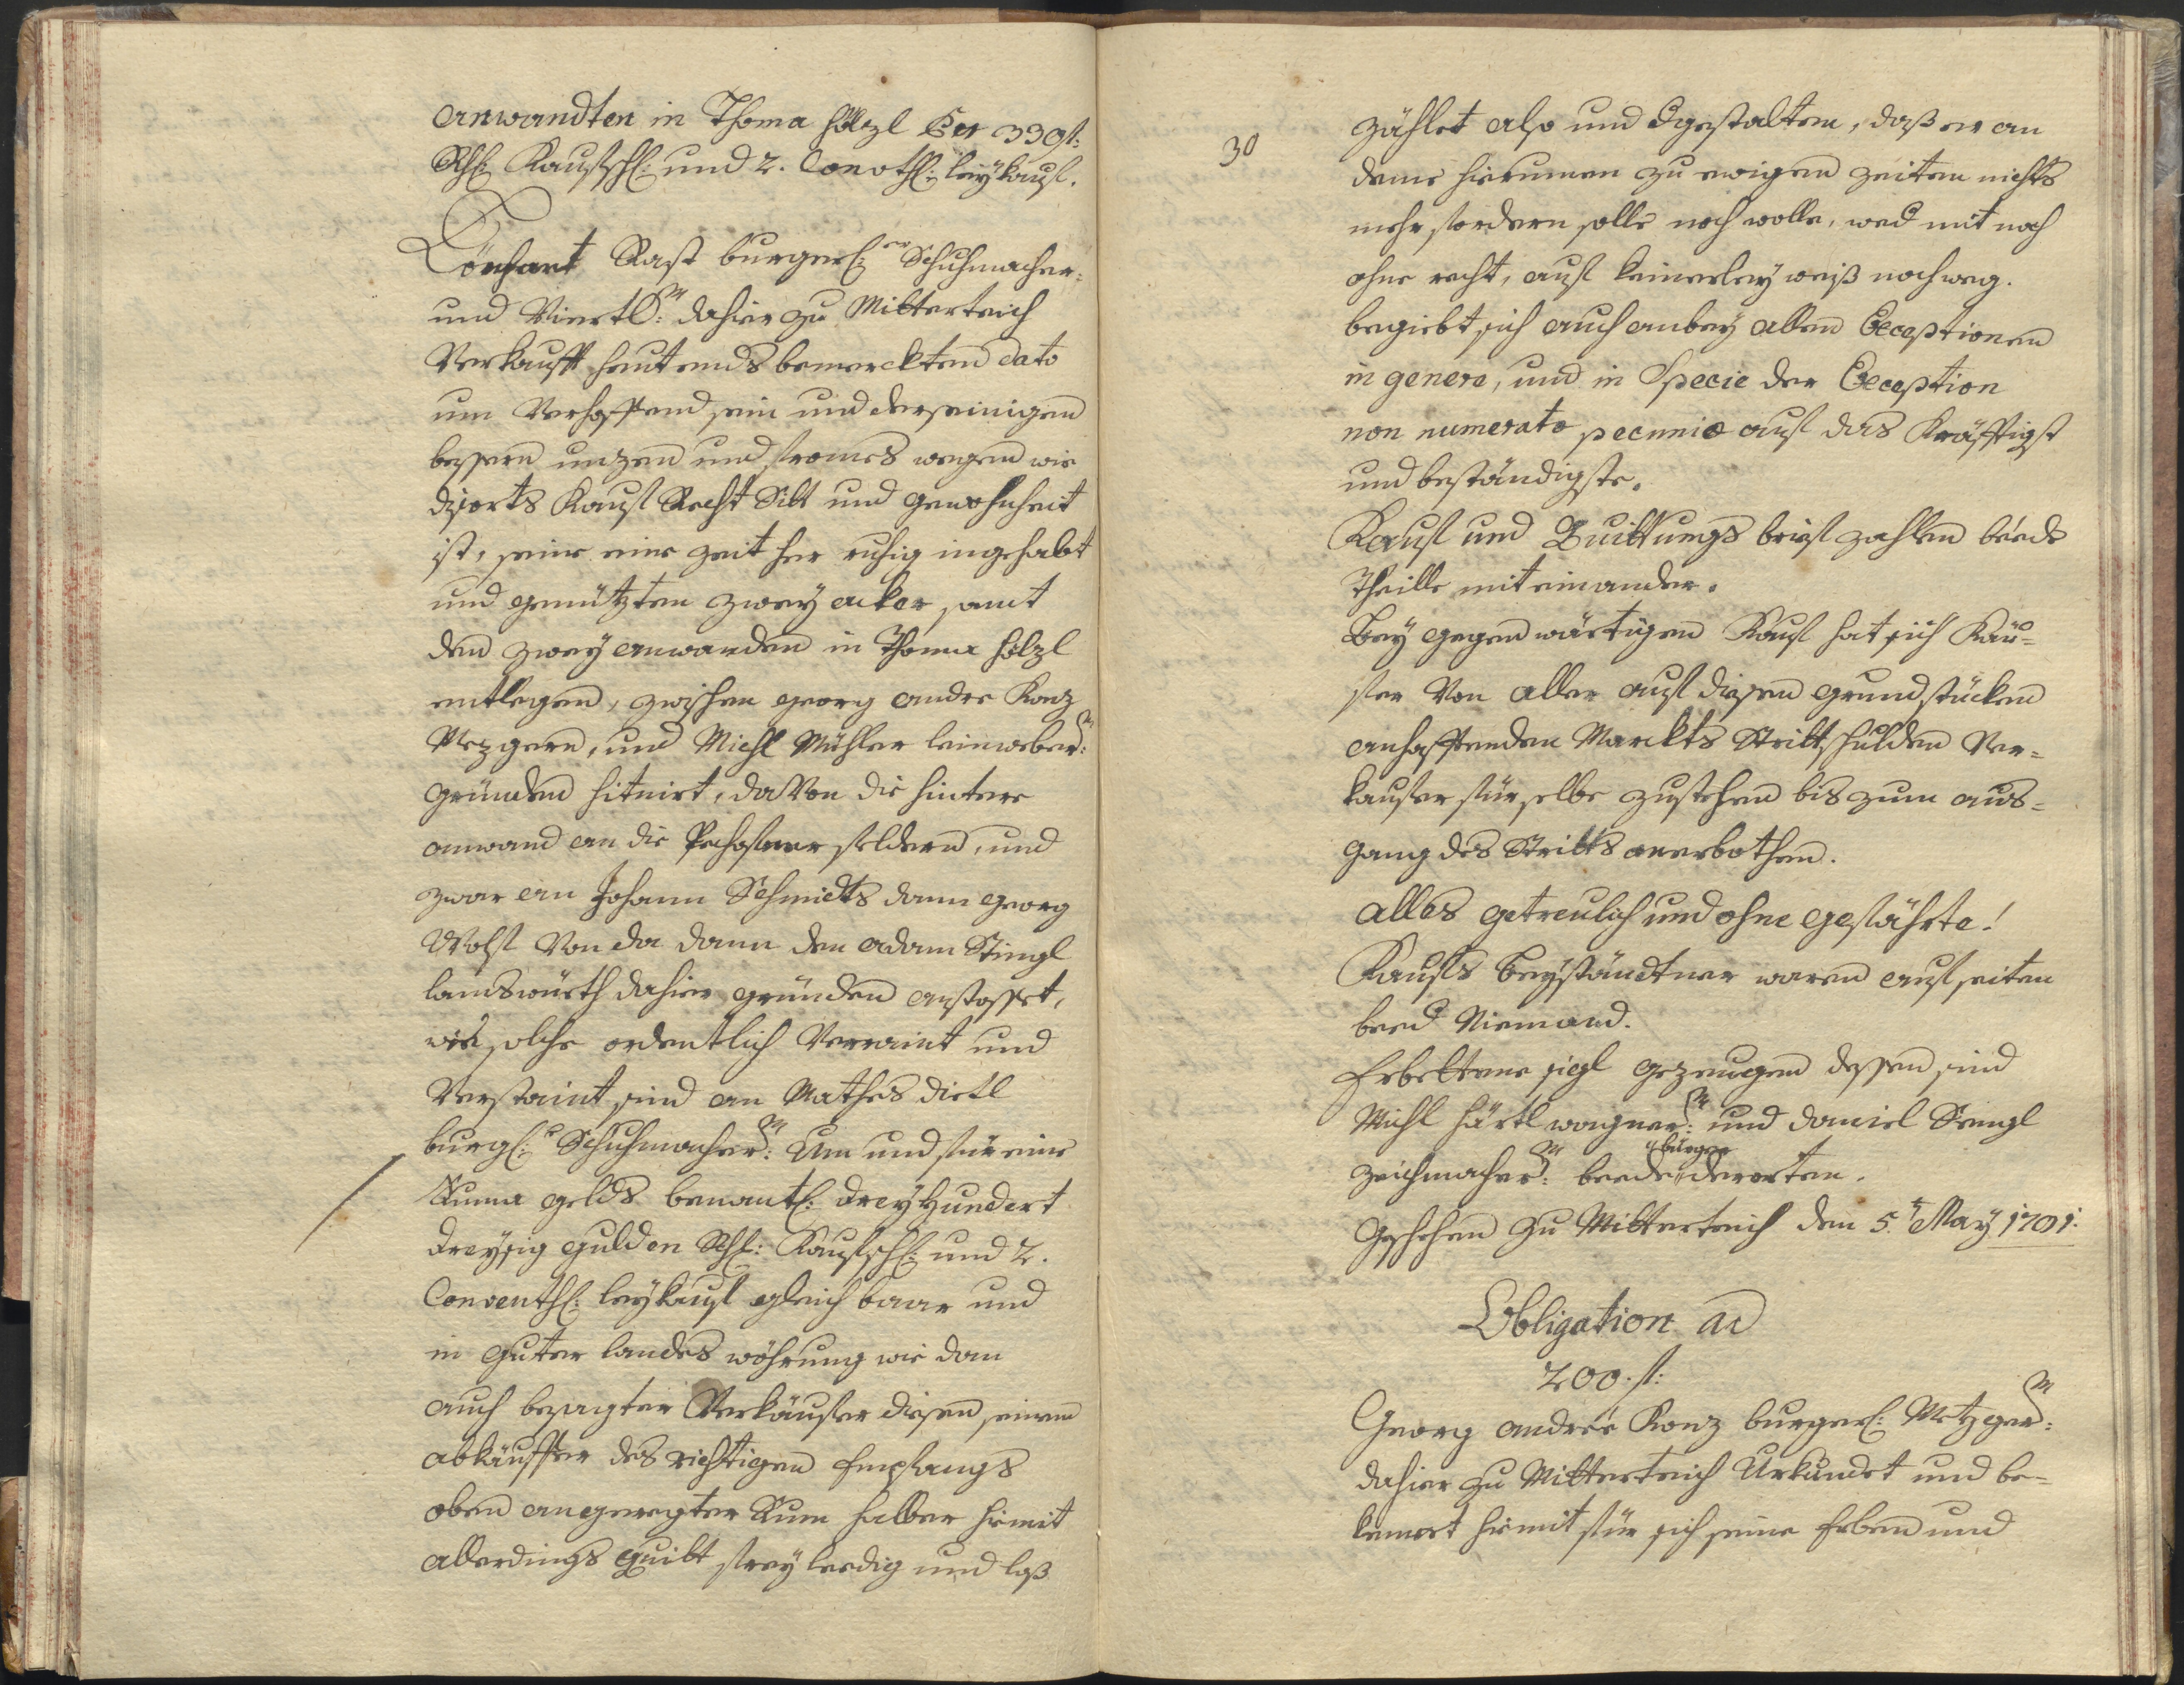 anwandten in Thoma hölzl Per 330 fl:
Rhl: Kaufschl: und 2. Convthl: leykauf.
Lönhart Rast burgerl:er Schuhmacher
und Viertl:m dahier zu Mitterteich
Verkaufft heut ends bemerckten dato
um Verhoffend sein und der seinigen
bessern nuzen und fromes wegen wie
diß orts Kauf Recht Sitt und gewohnheit
ist, seine eine zeit her ruhig ingehabt
und genützten zwey acker samt
den zwey anwanden in Thoma hölzl
entlegen, zwischen georg andre Konz
Mezgern, und Michl Mühler leinweber:m
gründen situirt, davon die hintere
anwand an die Pechofner feldern, und
zwar an Johann Schmidts dann georg
Wolf Von da dann den adam Stingl
landswürth dahier gründen anstosset,
wie solche ordentlich Verraint und
Verstaint sind an Mathes dietl
burgl:r Schuhmacher:m Um und für eine
Suma gelds benantl: dreyhundert
dreysig gulden Rhl: Kaufschl: und 2.
Conventhl: leykauf gleich baar und
in guter landes wöhrung wie dan
auch besagter Verkäufer diesen seinen
abkäuffer des richtigen Empfangs
oben angeregter Sum halber hiemit
allerdings quitt frey leedig und loß
30
zählet also und dgestalten, daß er an
deme hierumen zu ewigen zeiten nichts
mehr fordern solle noch wolle, wed mit noch
ohne recht, auf keinerley weiß noch weg.
begiebt sich auch anbey allen Exceptionen
in genere, und in Specie der Exception
non numerato pecuniæ auf das Kräfftigst
und beständigste.
Kauf und Quittungs brief zahlen beede
Theille miteinander.
Bey gegenwärtigen Kauf hat sich Käu-
fer Von aller auf diesen grundstücken
anhafftenden Markts Strittschulden Ver-
kaufer für selbe zustehen bis zum aus-
gang des Stritts anerbothen.
alles getreulich und ohne gefährte!
Kaufs Beyständtner waren auf seiten
beed Niemand.
Erbettene sigl gezeugen dessen sind
Michl Härtl wagner:m und daniel Stingl
Zeichmacher:m beede burger derorten.
Geschehen zu Mitterteich den 5.t May 1791.
Obligation ad
200. fl:
Georg andree Konz burgerl: Metzger:m
dahier zu Mitterteich Urkundet und be-
kennet hiemit für sich seine Erben und